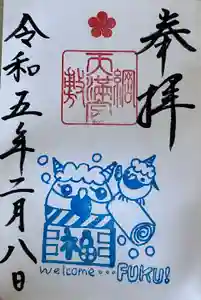 奉拝
令和五年二月八日
福
welcome... FUKU!